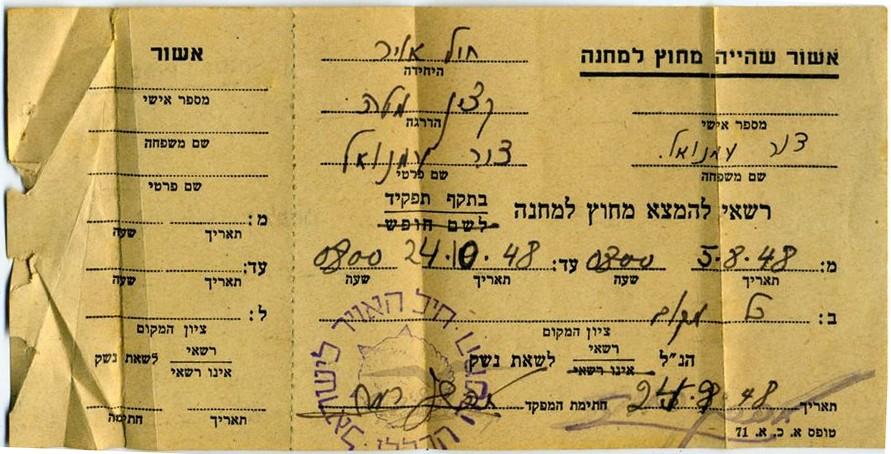 אשור שהייה מחוץ למחנה
חיל אויר
היחידה
קצין מטה
הדרגה
מספר אישי
צור עמנואל
שם פרטי
צור עמנואל.
שם משפחה
רשאי להמצא מחוץ למחנה בתקף תפקיד
לשם חופש
מ: 5.8.48 0800 עד: 24.10.48 0800
תאריך שעה תאריך שעה
ב: כל מקום
ציון המקום
הנ"ל רשאי לשאת נשק
אינו רשאי
תאריך 48 חתימת המפקד
טופס א. כ. א. 71
חיל האויר לישראל
אשור
מספר אישי
שם משפחה
שם פרטי
מ:
תאריך שעה
עד:
תאריך שעה
ל:
ציון המקום
רשאי לשאת נשק
אינו רשאי
תאריך חתימה